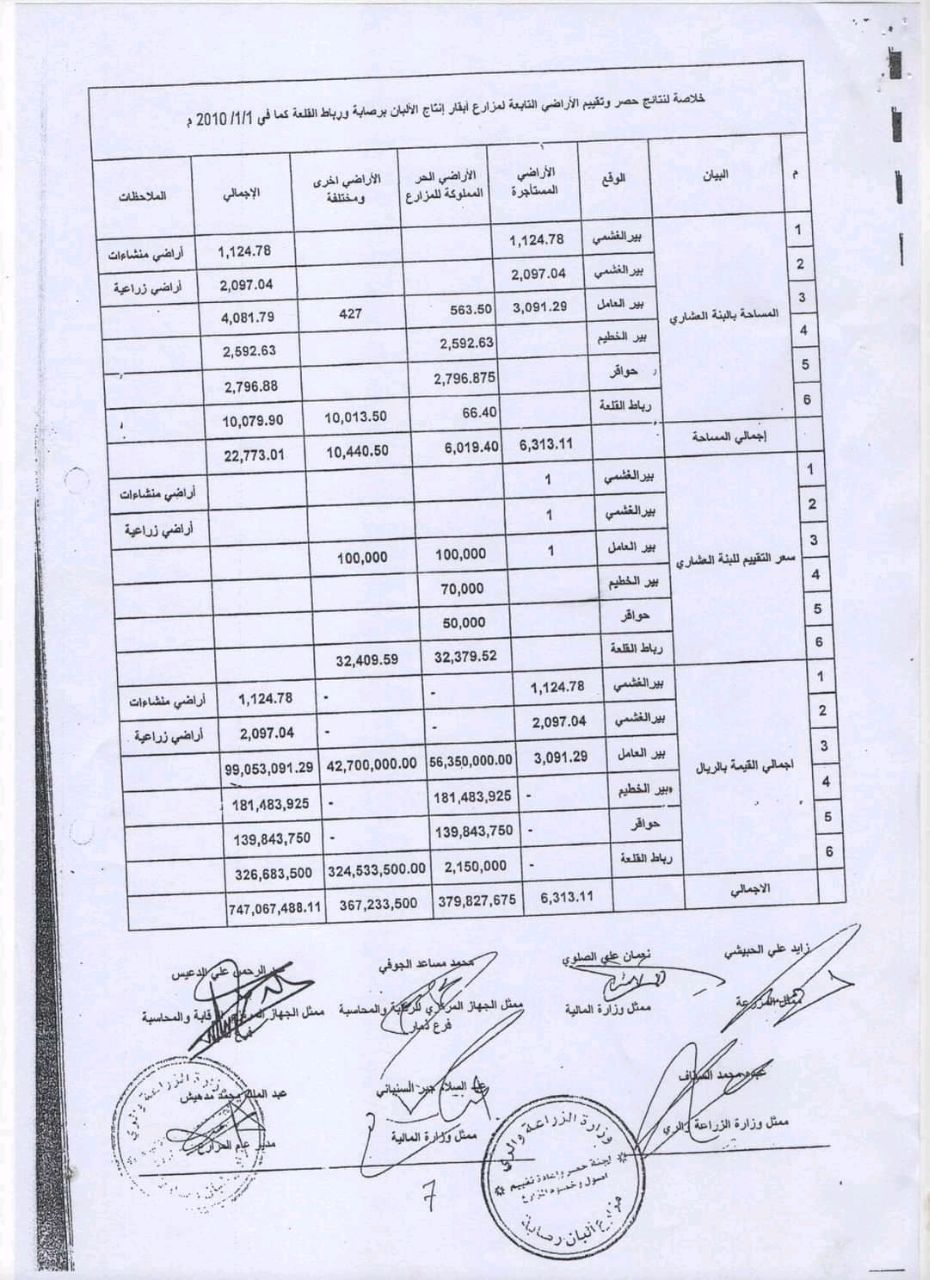 خلاصة لنتائج حصر وتقييم الأراضي التابعة لمزارع أبقار إنتاج الألبان برصابة ورباط القلعة كما في 1/1/ 2010 م
م البيان الوقع الأراضي المستأجرة الأراضي الحر المملوكة للمزارع الأراضي اخرى ومختلفة الإجمالي الملاحظات
المساحة بالبنة العشاري
1 بير الغشمي 1,124.78 1,124.78 أراضي منشاءات
2 بير الغشمي 2,097.04 2,097.04 أراضي زراعية
3 بير العامل 3,091.29 563.50 427 4,081.79
4 بير الخطيم 2,592.63 2,592.63
5 حواقر 2,796.875 2,796.88
6 رباط القلعة 66.40 10,013.50 10,079.90
إجمالي المساحة 6,313.11 6,019.40 10,440.50 22,773.01
سعر التقييم للبنة العشاري
1 بير الغشمي 1 أراضي منشاءات
2 بير الغشمي 1 أراضي زراعية
3 بير العامل 1 100,000 100,000
4 بير الخطيم 70,000
5 حواقر 50,000
6 رباط القلعة 32,379.52 32,409.59
اجمالي القيمة بالريال
1 بير الغشمي 1,124.78 - - 1,124.78 أراضي منشاءات
2 بير الغشمي 2,097.04 - - 2,097.04 أراضي زراعية
3 بير العامل 3,091.29 56,350,000.00 42,700,000.00 99,053,091.29
4 بير الخطيم - 181,483,925 - 181,483,925
5 حواقر - 139,843,750 - 139,843,750
6 رباط القلعة - 2,150,000 324,533,500.00 326,683,500
الاجمالي 6,313.11 379,827,675 367,233,500 747,067,488.11
زايد علي الحبيشي نجمان علي الصلوي محمد مساعد الجوفي الرحمن علي الدعيس
ممثل المزرعة ممثل وزارة المالية ممثل الجهاز المركزي للرقابة والمحاسبة ممثل الجهاز المركزي للرقابة والمحاسبة
فرع ذمار
محمد السقاف عبد السلام جبر السنباني عبد الملك محمد مدهيش
ممثل وزارة الزراعة والري ممثل وزارة المالية مدير عام المزارع
7
وزارة الزراعة والري
لجنة حصر واعادة تقييم
اصول وخصوم المزارع
مزارع ألبان رصابة
وزارة الزراعة والري